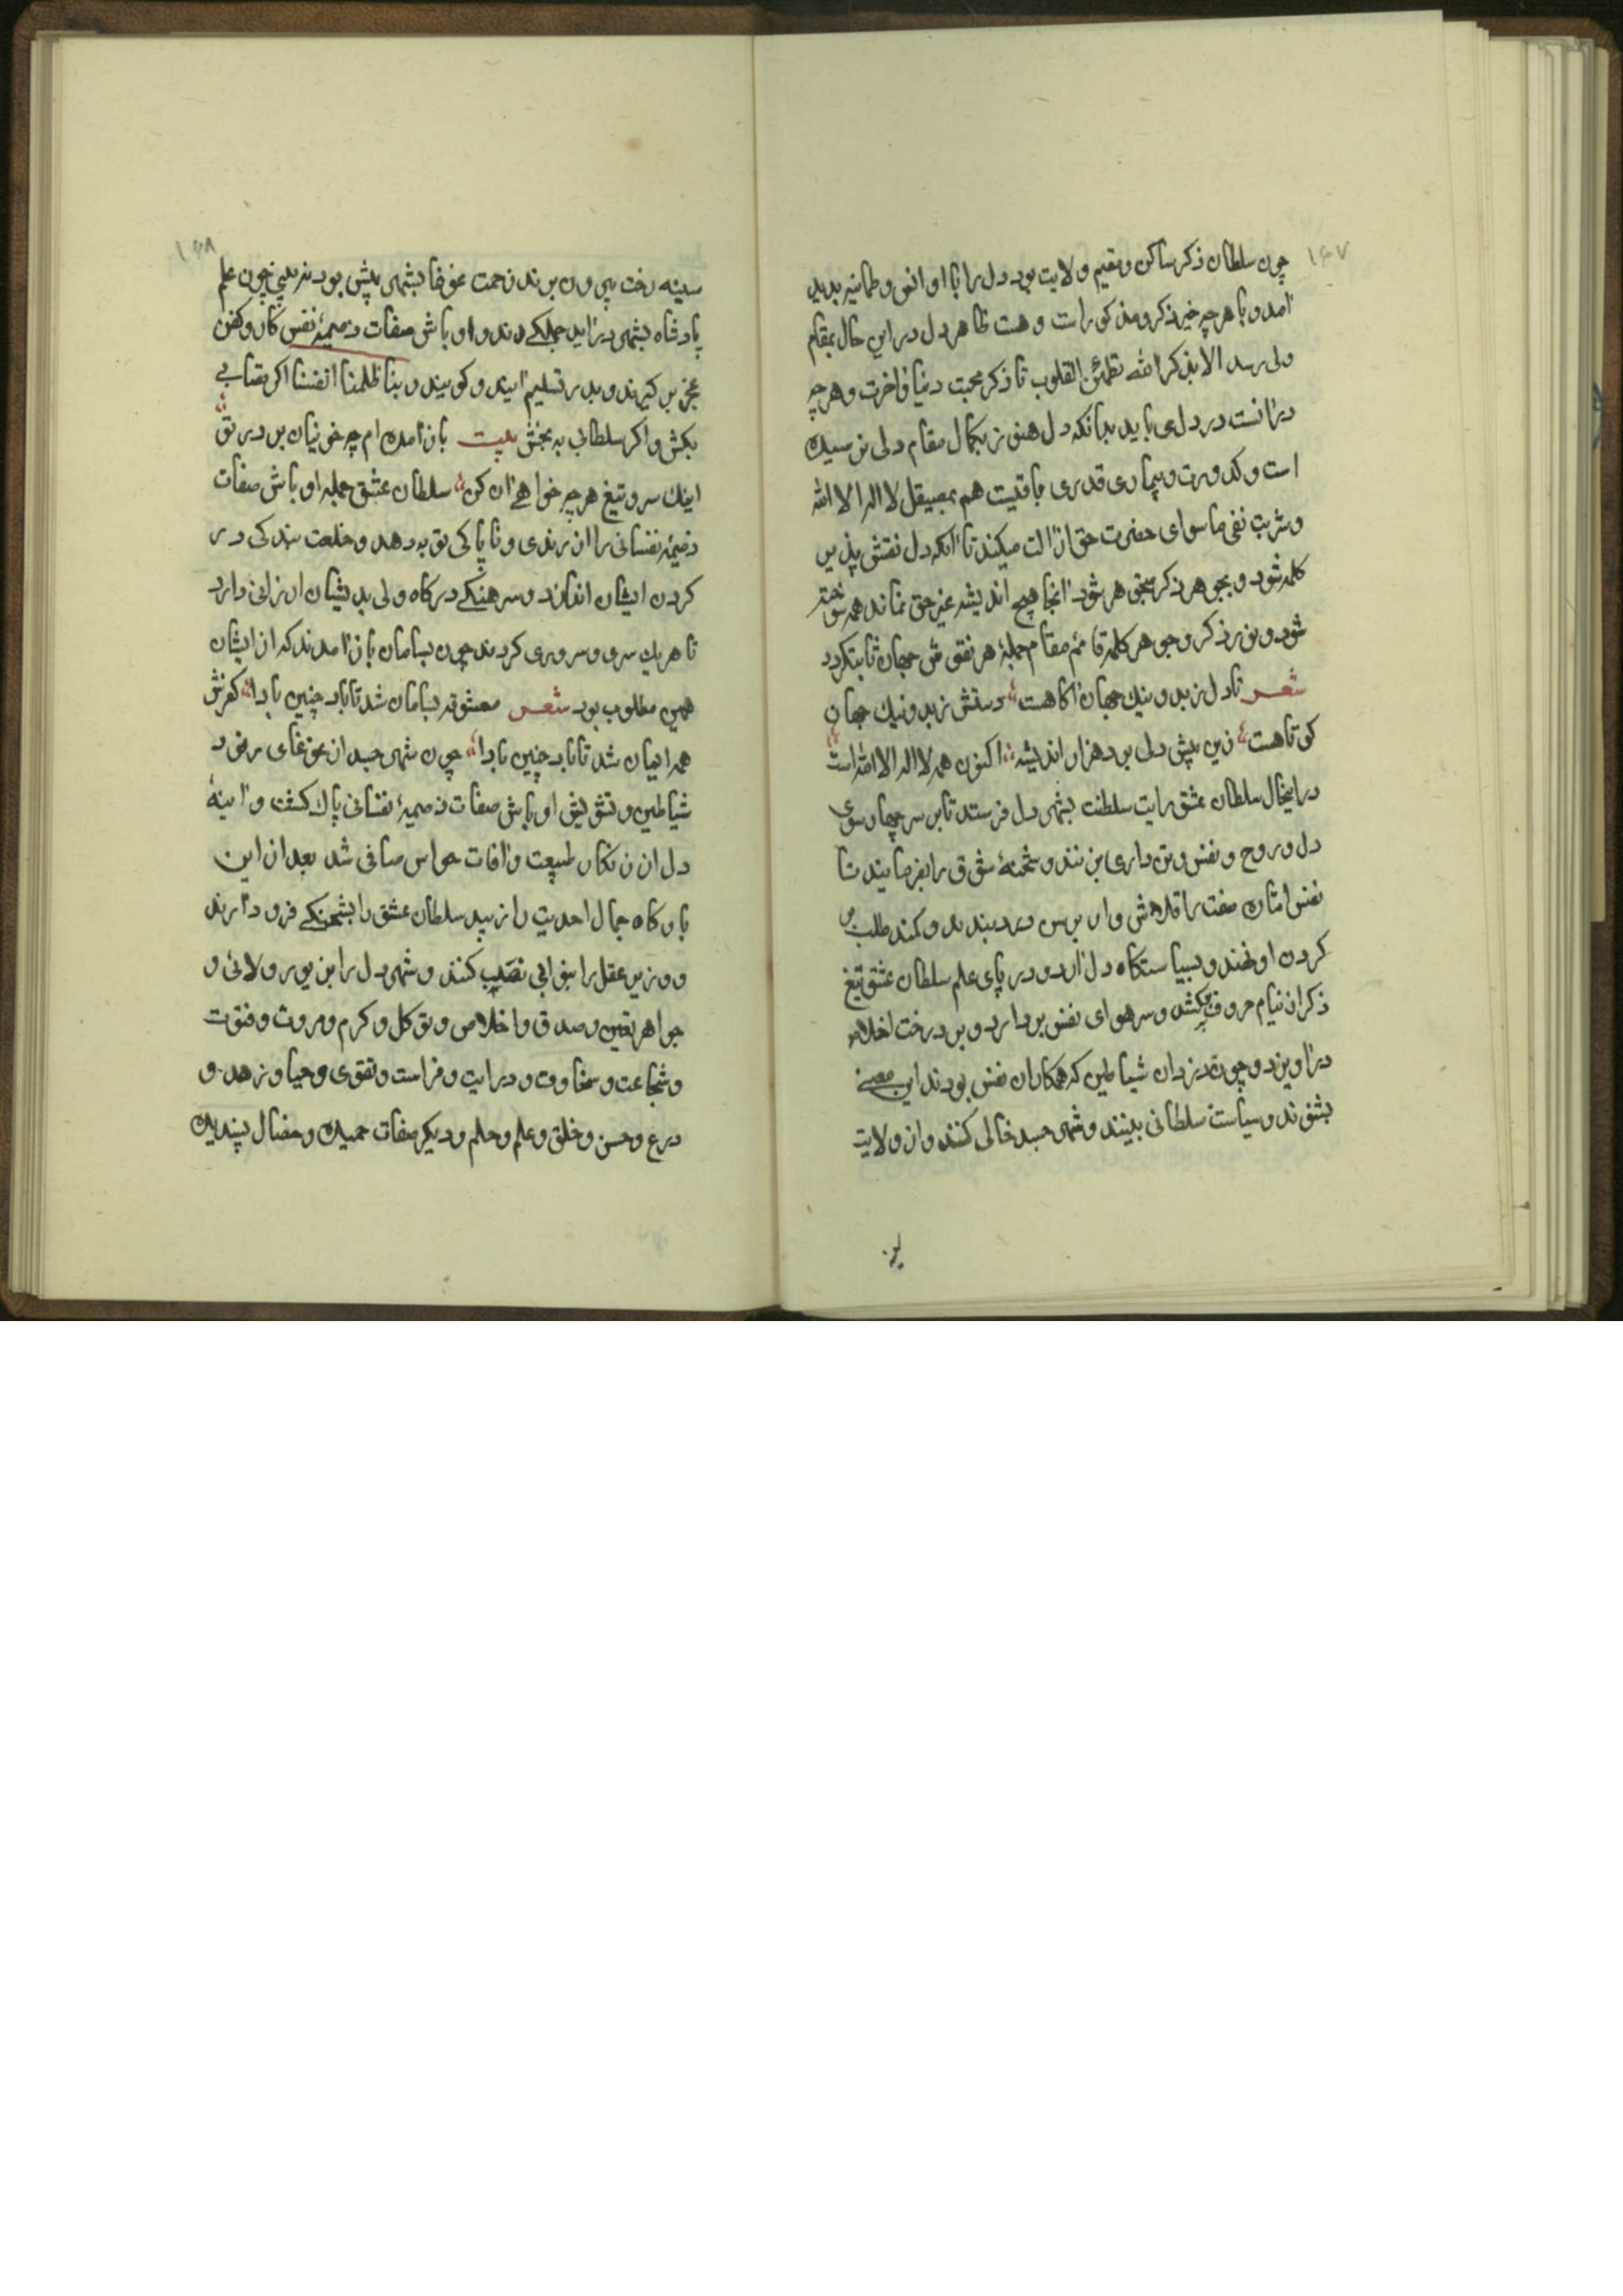 ۱۶۷
چون سلطان ذکر ساکن و مقیم ولایت بود دل را با او انس و طمانینه پدید
آمد و با هرچه غیر ذکر و مذکور است وحشت ظاهر دل در این حال بمقام
ولی رسد الا بذکر الله تطمئن القلوب تا ذکر محبت دنیا و آخرت و هرچه
درآنست در دل می یابد بدانکه دل هنوز بکمال مقام دلی نرسیده
است و کدورت و بیماری قدری باقیست هم بمصیقل لا اله الا الله
و شربت نفی ماسوای حضرت حق ازالت میکند تا آنکه دل نقش پذیر
کلمه شود و بجوهر ذکر متجوهر شود آنجا هیچ اندیشه غیر حق نماند همه سوخته
شود و نور ذکر و جوهر کلمه قائم مقام جمله هر نقوش جهان ثابت گردد
شعر تا دل ز بد و نیک جهان آگاهست دستش ز بد و نیک جهان
کوتاهست زین پیش دلی بود هزار اندیشه اکنون همه لا اله الا الله است
دراینحال سلطان عشق رایت سلطنت بشهر دل فرستد تا بر سر چهار سوی
دل و روح و نفس و تن داری بزنند و شحنهٔ شوق را بفرمایند تا
نفس امّاره صفت را قلاش وار برسن درد ببندد و کمند طلب بر
گردن او نهند و بسیاستگاه دل آرد و در پای علم سلطان عشق تیغ
ذکر از نیام حروف برکشد و سر هوای نفس بردارد و بر درخت اخلاص
درآویزد و چون دزدان شیاطین که همکاران نفس بودند این معنی
بشنوند و سیاست سلطانی ببینند و شهر جسد خالی کنند و از ولایت
۱۶۸
سینه رخت بیرون برند زحمت غوغا بشهر پیش بود برنیین چون علم
پادشاه بشهر درآید جملگی رندو اوباش صفات ذمیمهٔ نفس کارد و کفن
عجز برگیرند و بدر تسلیم آیند و گویند ربنا ظلمنا انفسنا اگر قصابی
بکش و اگر سلطانی به بخش بیت بازآمده ام چه خونیان بر در تو
اینک سر و تیغ هرچه خواهی آن کن سلطان عشق جمله اوباش صفات
ذمیمهٔ نفسانی را از رندی و ناپاکی توبه دهد و خلعت بندگی در
گردن ایشان اندازد و سرهنگی درگاه ولی بدیشان ارزانی دارد
تا هریک سرو و سروری کردند چون بسامان بازآمدند که از ایشان
همین مطلوب بود شعر معشوقه بسامان شد تا باد چنین بادا کفرش
همه ایمان شد تا باد چنین بادا چون شهر جسد از غوغای رنود
شیاطین و تشویش اوباش صفات ذمیمهٔ نفسانی پاک گشت و آینهٔ
دل از زنگار طبیعت و آفات حواس صافی شد بعد از این
بارگاه جمال احدیت را زیبد سلطان عشق را بشحنگی فرود آرند
و وزیر عقل را بنوابی نصب کنند و شهر دل را بزیور و لآلی و
جواهر یقین و صدق و اخلاص و توکل و کرم و مروت و فتوت
و شجاعت و سخاوت و درایت و فراست و تقوی و حیا و زهد و
درع و حسن و خلق و علم و حلم و دیگر صفات حمیده و خصال پسندیده